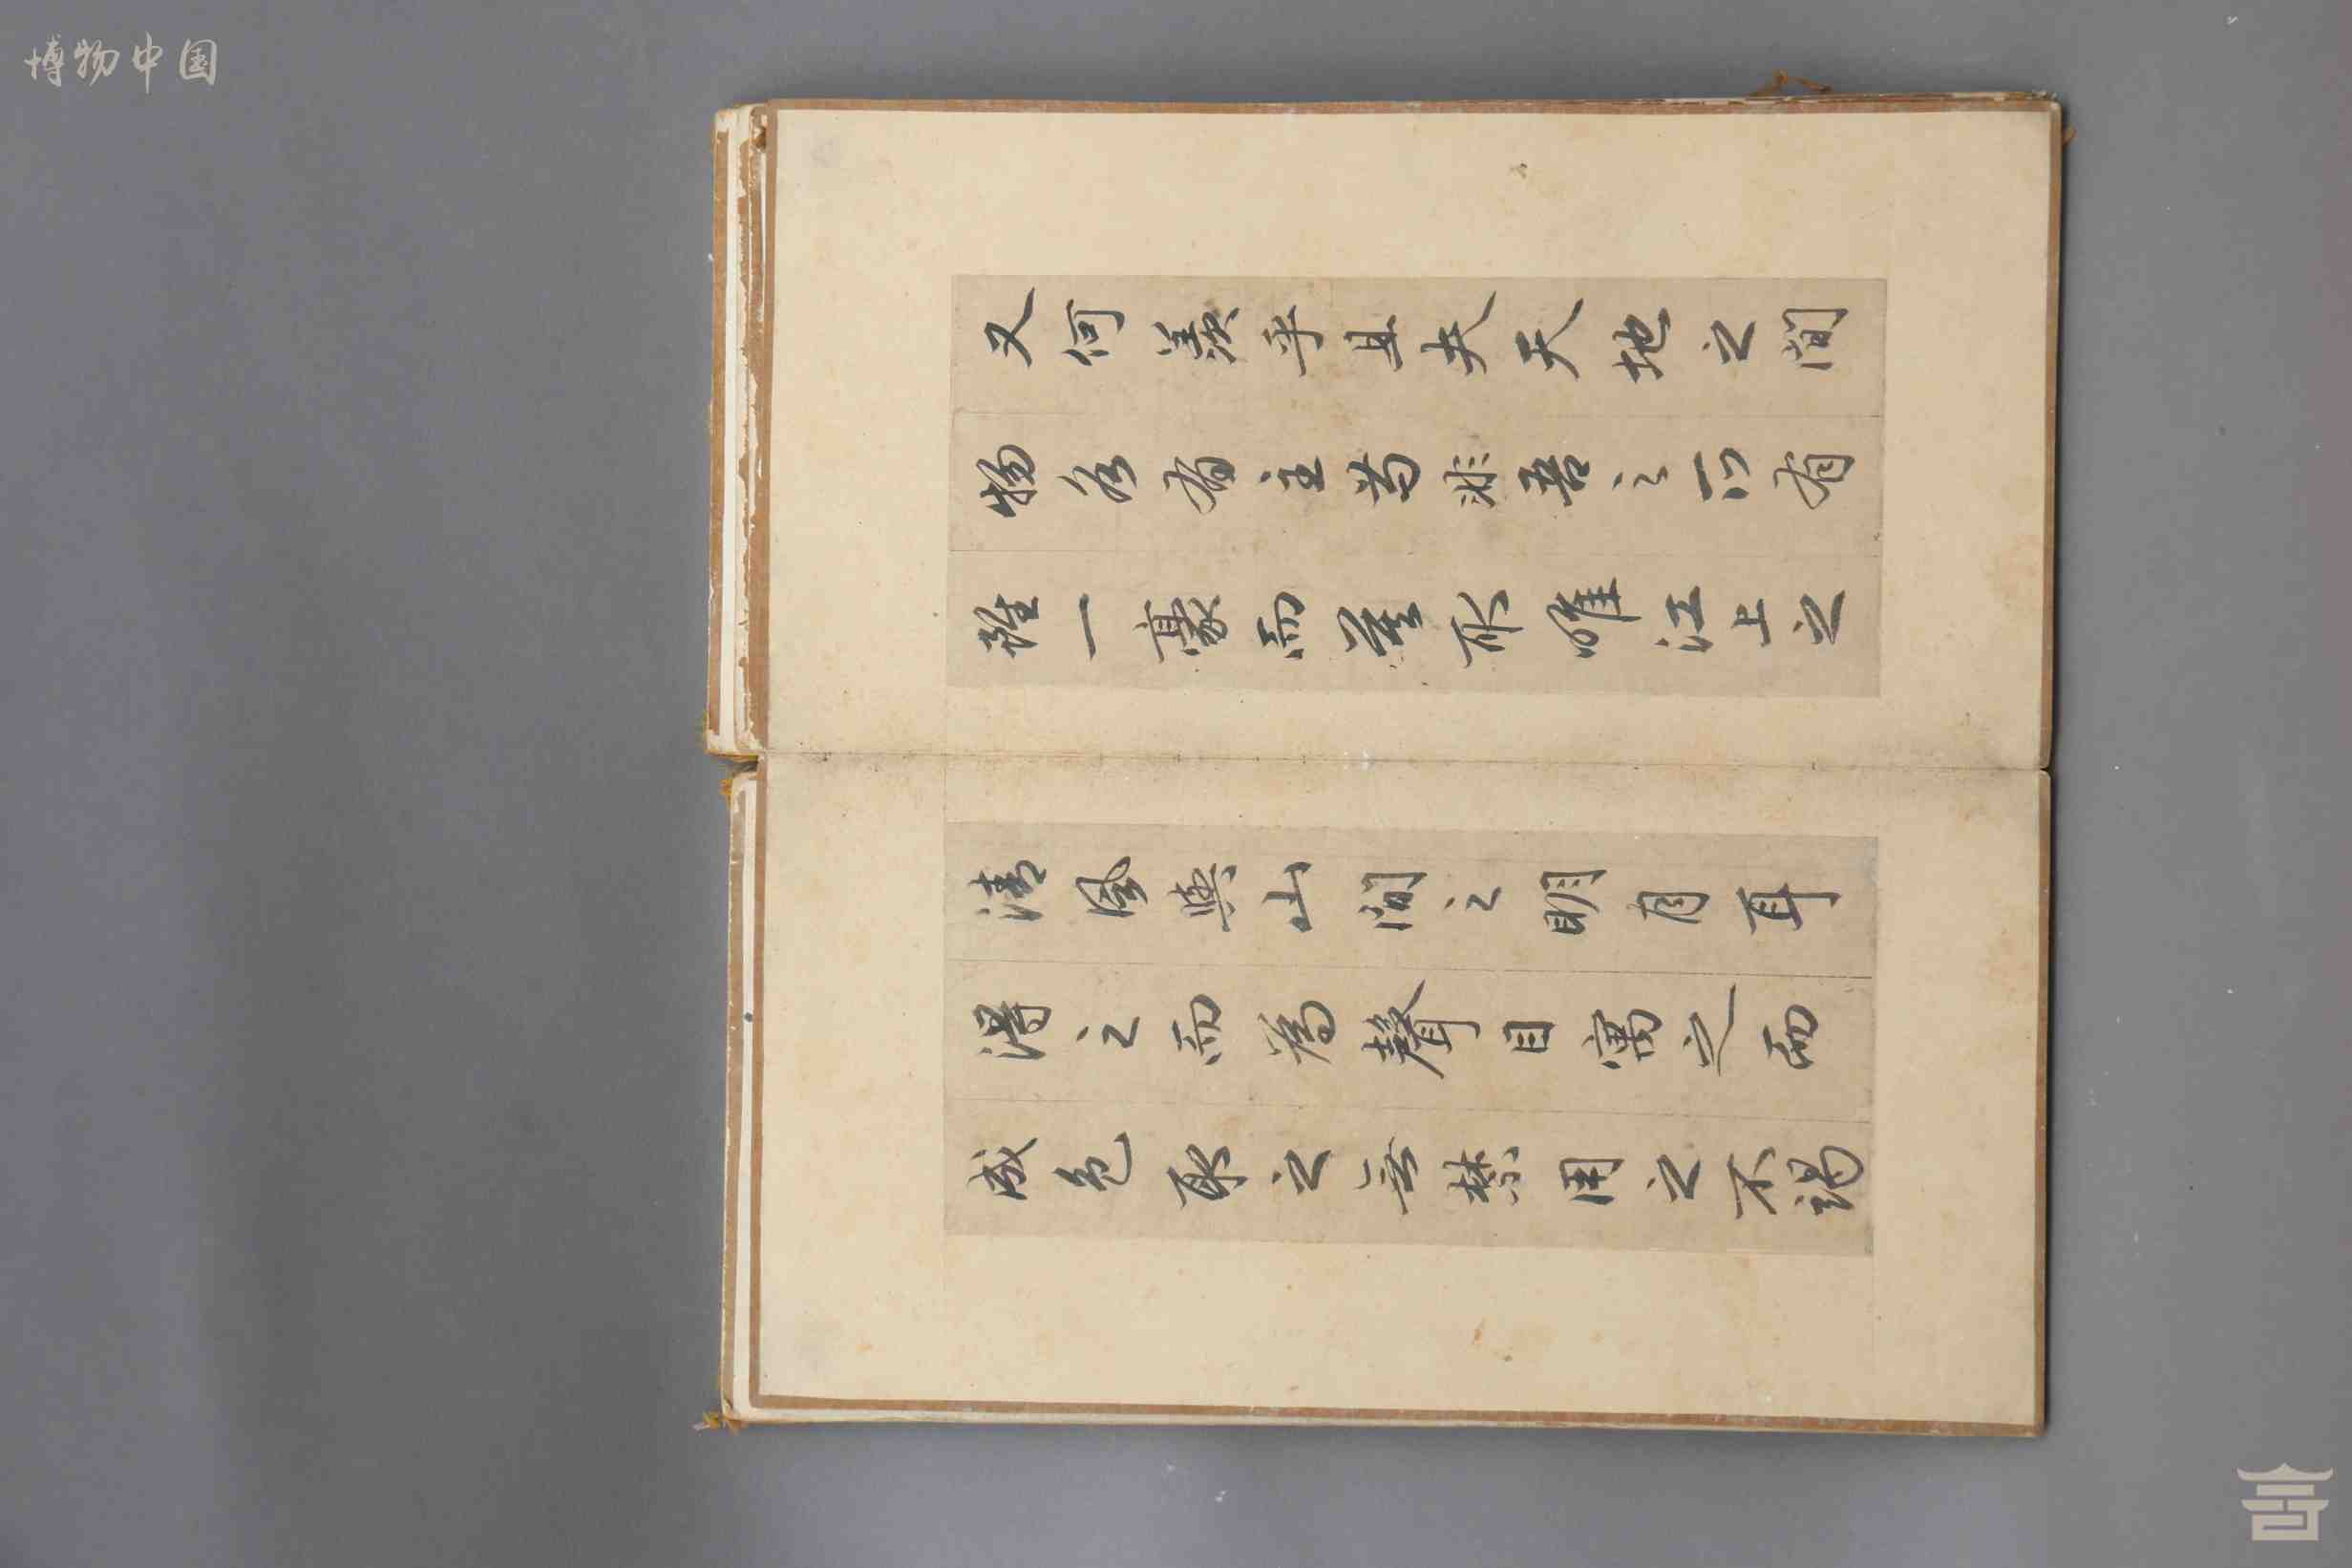 博物中国
又何羨乎且夫天地之間
物各有主苟非吾之所有
雖一豪而莫取唯江上之
清風與山間之明月耳
得之而為聲目寓之而
成色取之無禁用之不竭